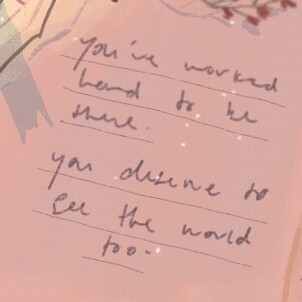 You've worked
hard to be
there.
you deserve to
see the world
too.